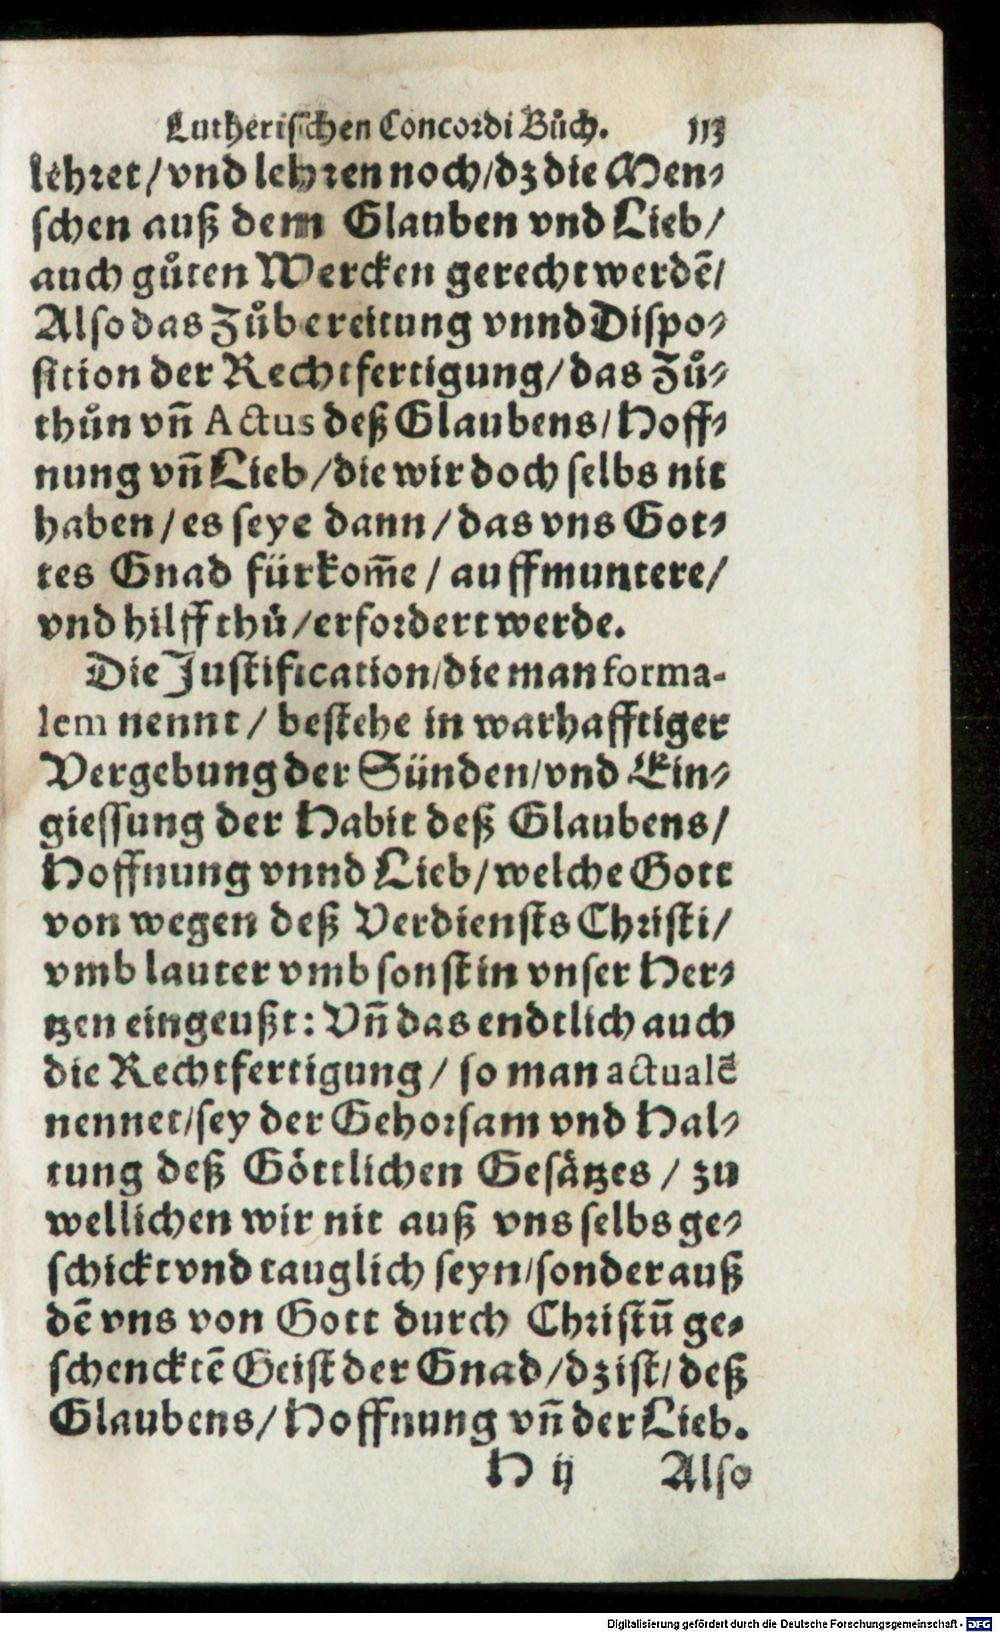 Lutherischen Concordi Bůch. 113
lehret / vnd lehren noch / dz die Men⸗
schen auß dem Glauben vnd Lieb /
auch gůten Wercken gerecht werdē /
Also das Zůbereitung vnnd Dispo⸗
sition der Rechtfertigung / das Zů⸗
thůn vñ Actus deß Glaubens / Hoff⸗
nung vñ Lieb / die wir doch selbs nit
haben / es seye dann / das vns Got⸗
tes Gnad fürkom̃e / auffmuntere /
vnd hilff thů / erfordert werde.
Die Justification / die man forma-
lem nennt / bestehe in warhafftiger
Vergebung der Sünden / vnd Ein⸗
giessung der Habit deß Glaubens /
Hoffnung vnnd Lieb / welche Gott
von wegen deß Verdiensts Christi /
vmb lauter vmb sonst in vnser Her⸗
tzen eingeußt: Vñ das endtlich auch
die Rechtfertigung / so man actualē
nennet / sey der Gehorsam vnd Hal⸗
tung deß Göttlichen Gesätzes / zu
wellichen wir nit auß vns selbs ge⸗
schickt vnd tauglich seyn / sonder auß
dē vns von Gott durch Christū ge⸗
schencktē Geist der Gnad / dz ist / deß
Glaubens / Hoffnung vñ der Lieb.
H ij Also
Digitalisierung gefördert durch die Deutsche Forschungsgemeinschaft - DFG